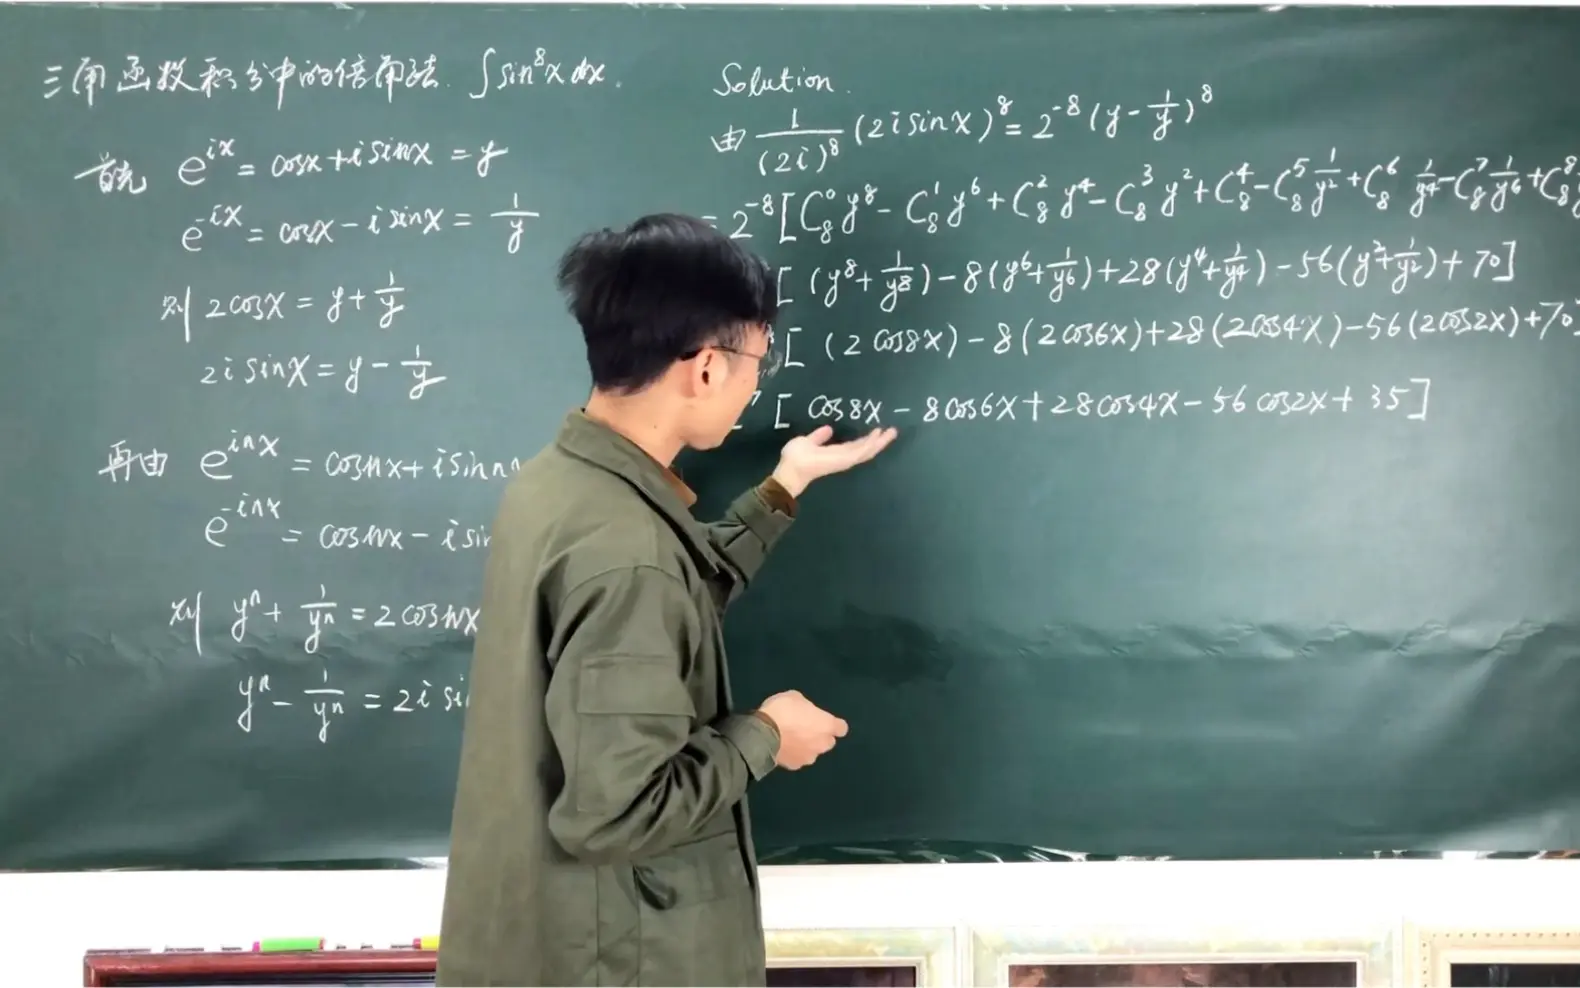 三角函数积分中的倍角法. ∫sin⁸x dx.
首先 e^{ix} = cosx + i sinx = y
e^{-ix} = cosx - i sinx = 1/y
则 2cosx = y + 1/y
2i sinx = y - 1/y
再由 e^{inx} = cosnx + i sin n
e^{-inx} = cosnx - i sin
则 yⁿ + 1/yⁿ = 2cosnx
yⁿ - 1/yⁿ = 2i si
Solution.
由 1/(2i)⁸ (2i sinx)⁸ = 2⁻⁸ (y - 1/y)⁸
= 2⁻⁸ [C₈⁰ y⁸ - C₈¹ y⁶ + C₈² y⁴ - C₈³ y² + C₈⁴ - C₈⁵ 1/y² + C₈⁶ 1/y⁴ - C₈⁷ 1/y⁶ + C₈⁸
[ (y⁸ + 1/y⁸) - 8(y⁶ + 1/y⁶) + 28(y⁴ + 1/y⁴) - 56(y² + 1/y²) + 70]
[ (2cos8x) - 8(2cos6x) + 28(2cos4x) - 56(2cos2x) + 70]
[ cos8x - 8cos6x + 28cos4x - 56cos2x + 35]